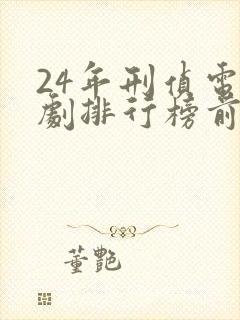 24年刑偵電
劇排行榜前
董艷